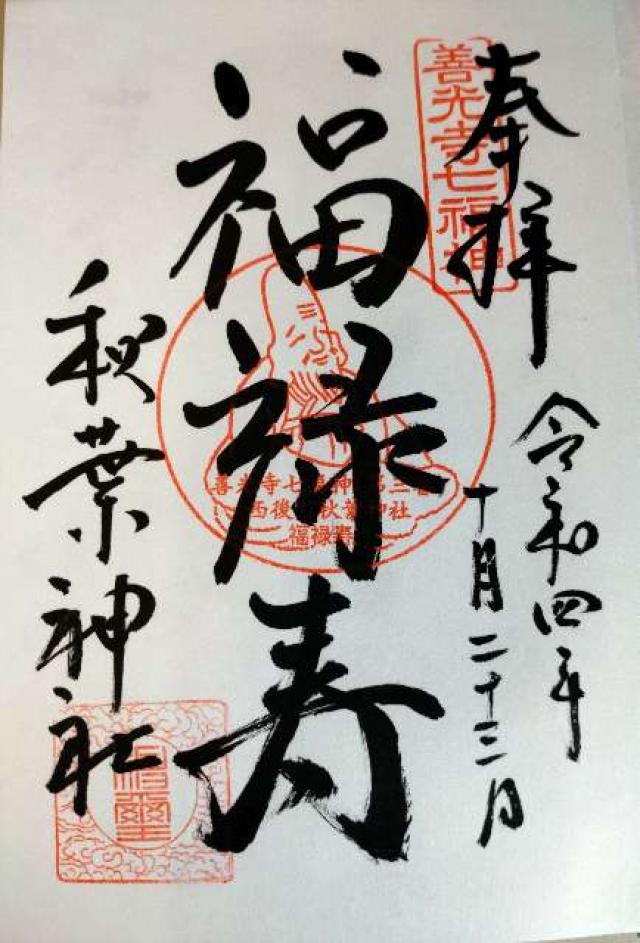 奉拝
令和四年
十月二十三日
善光寺七福神
福禄寿
善光寺七福神第三番
西後町秋葉神社
福禄寿
秋葉神社